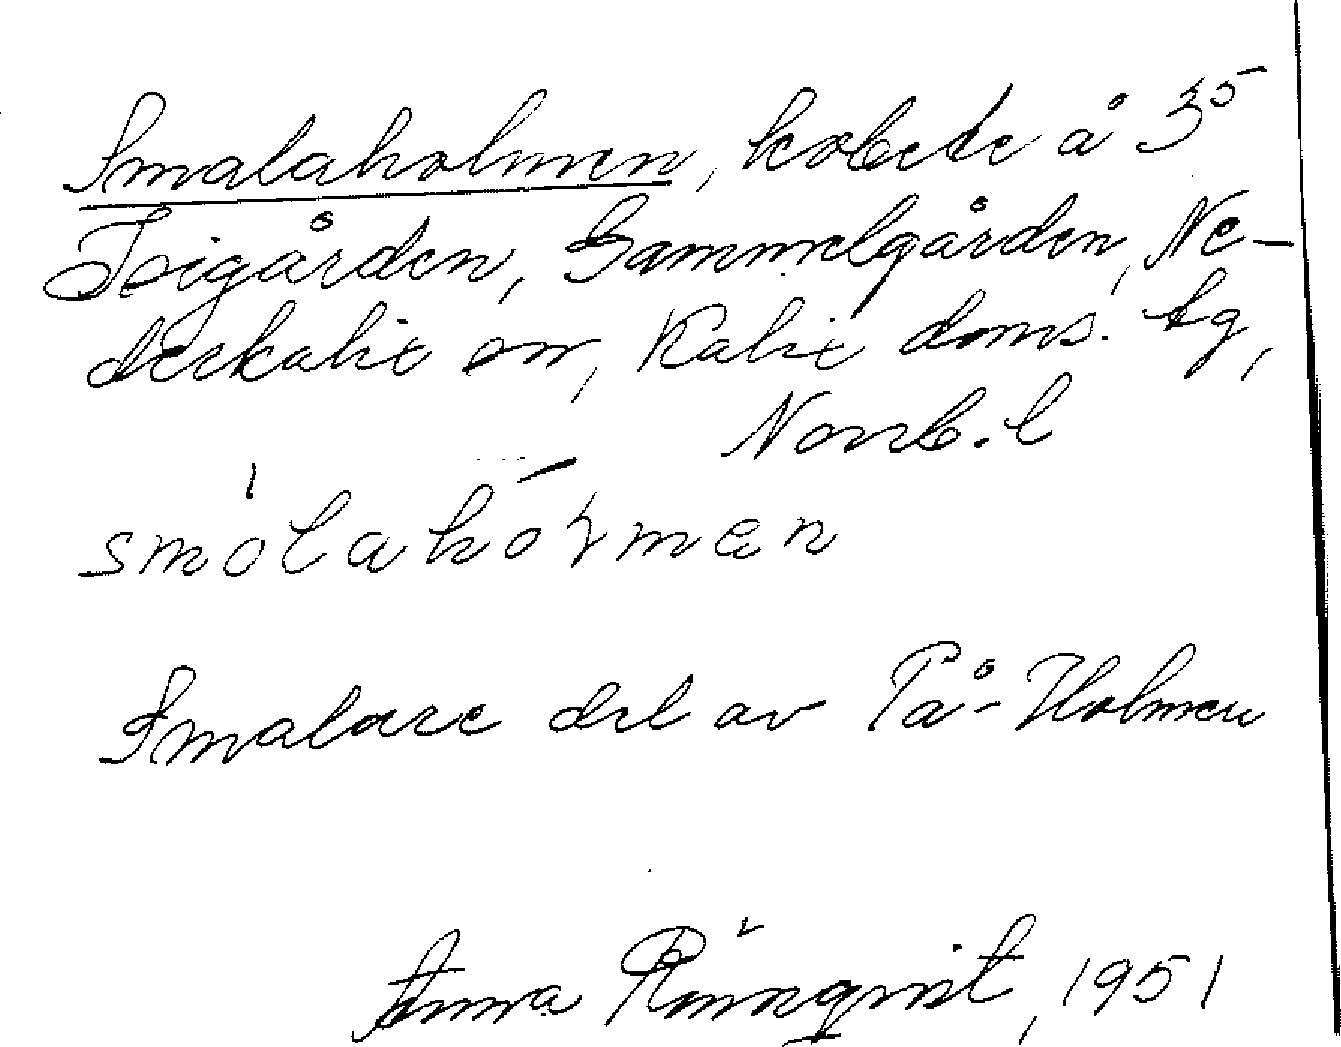 Smalaholmen, kobete å 3⁵
Isigården, Gammelgården, Ne-
derkalix sn, Kalix doms. tg,
Norrb. l
smòlahòrmen
Smalare del av På-Holmen
Anna Rönnqvist, 1951